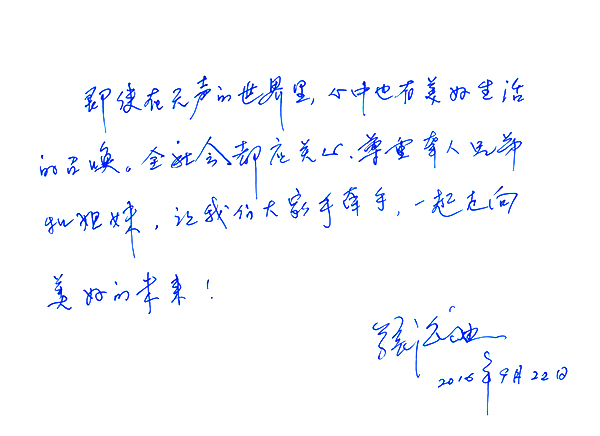 即使在无声的世界里，心中也有美好生活
的召唤。全社会都应关心、尊重聋人兄弟
和姐妹，让我们大家手牵手，一起走向
美好的未来！
张海迪
2016年9月22日